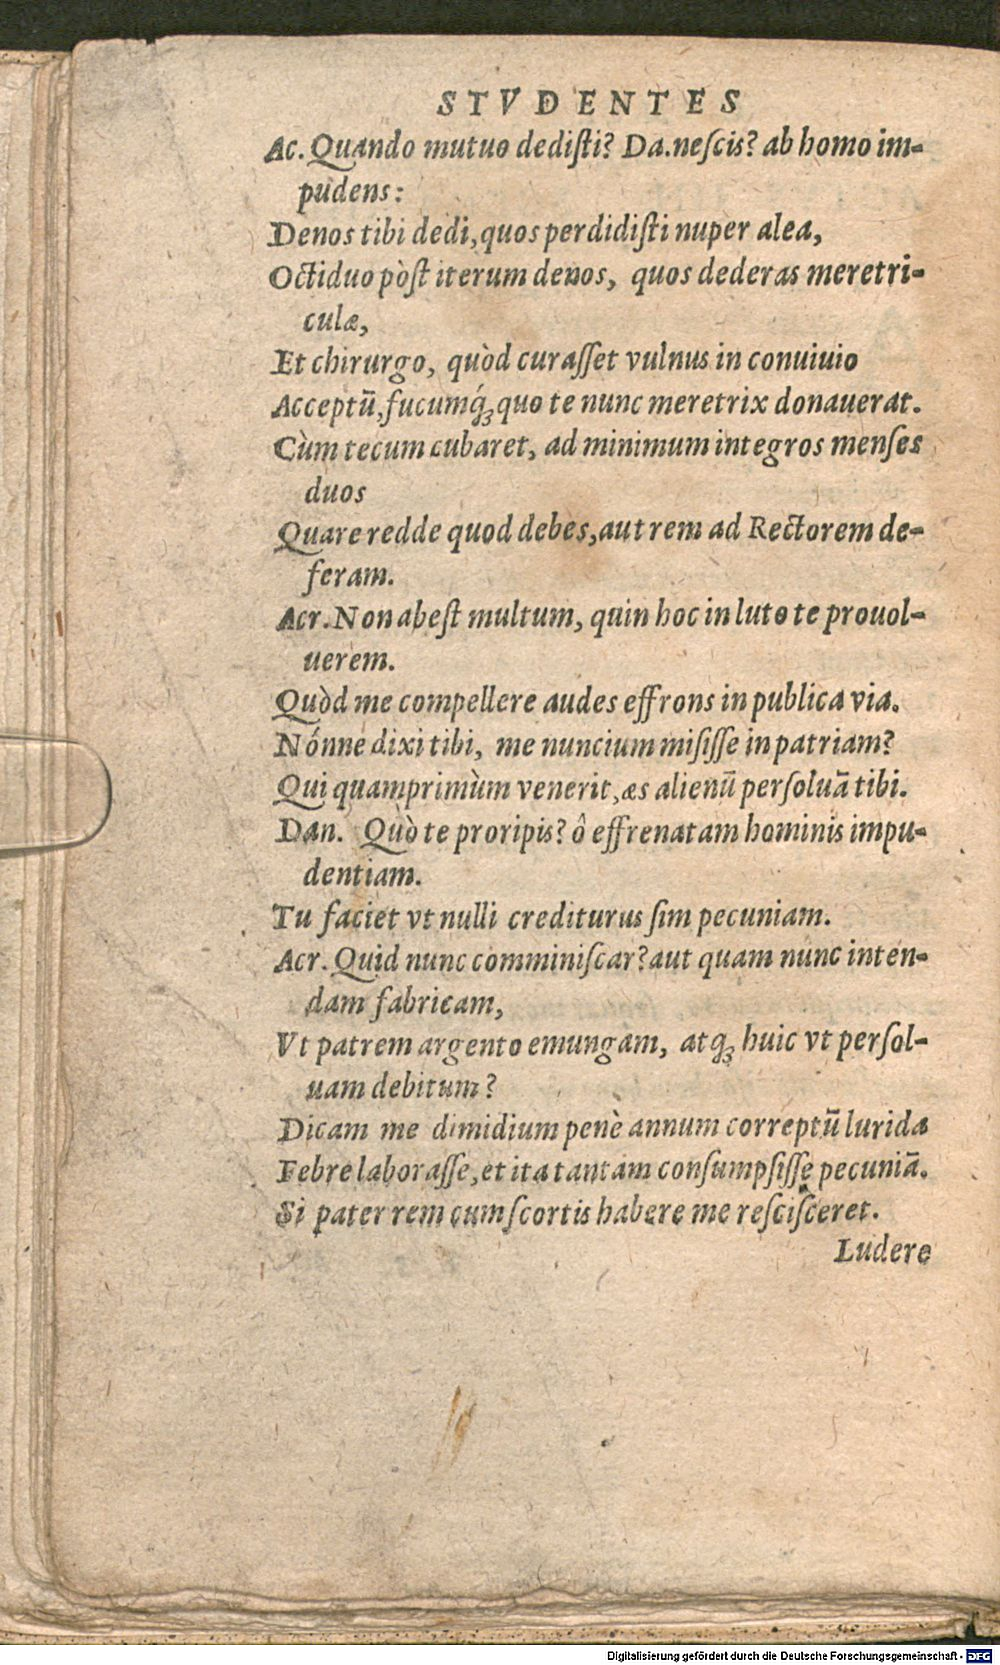 STVDENTES
Ac. Quando mutuo dediſti? Da. neſcis? ab homo im-
pudens:
Denos tibi dedi, quos perdidiſti nuper alea,
Octiduo pòſt iterum denos, quos dederas meretri-
culæ,
Et chirurgo, quòd curaſſet vulnus in conuiuio
Acceptū, fucumq́ꝫ quo te nunc meretrix donauerat.
Cùm tecum cubaret, ad minimum integros menſes
duos
Quare redde quod debes, aut rem ad Rectorem de-
feram.
Acr. Non abeſt multum, quin hoc in luto te prouol-
uerem.
Quòd me compellere audes effrons in publica via.
Nónne dixi tibi, me nuncium miſiſſe in patriam?
Qui quamprimùm venerit, æs alienū perſoluā tibi.
Dan. Quò te proripis? ô effrenatam hominis impu-
dentiam.
Tu faciet vt nulli crediturus ſim pecuniam.
Acr. Quid nunc comminiſcar? aut quam nunc inten-
dam fabricam,
Vt patrem argento emungam, atqꝫ huic vt perſol-
uam debitum?
Dicam me dimidium penè annum correptū lurida
Febre laboraſſe, et ita tantam conſumpſiſſe pecuniā.
Si pater rem cum ſcortis habere me reſciſceret.
Ludere
Digitalisierung gefördert durch die Deutsche Forschungsgemeinschaft - DFG